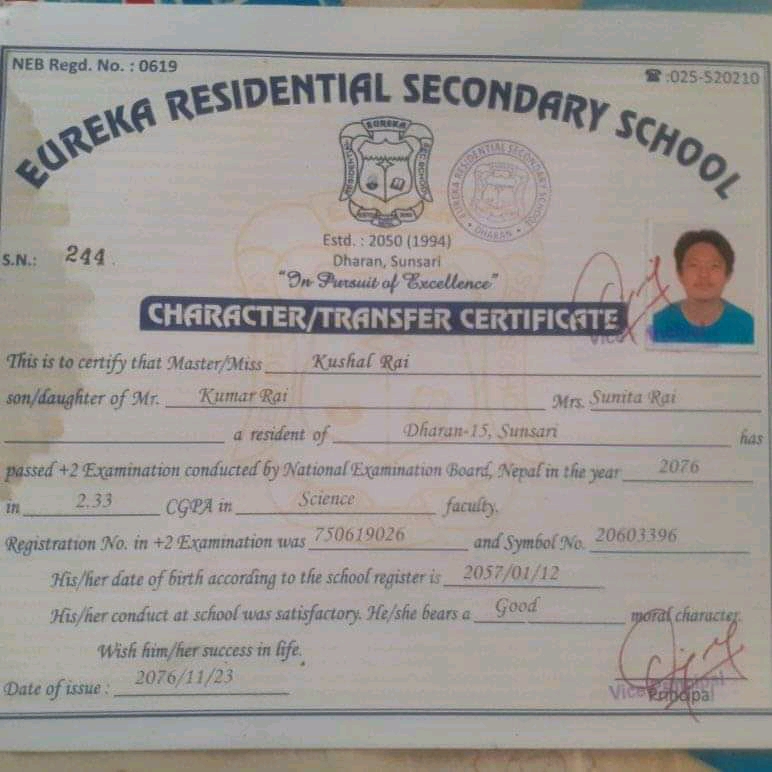 NEB Regd. No. : 0619
☎ :025-520210
EUREKA RESIDENTIAL SECONDARY SCHOOL
EUREKA
EUREKA RESIDENTIAL SECONDARY SCHOOL
DHARAN
Estd. : 2050 (1994)
S.N.: 244.
Dharan, Sunsari
"In Pursuit of Excellence"
CHARACTER/TRANSFER CERTIFICATE
This is to certify that Master/Miss Kushal Rai
son/daughter of Mr. Kumar Rai Mrs. Sunita Rai
a resident of Dharan-15, Sunsari has
passed +2 Examination conducted by National Examination Board, Nepal in the year 2076
in 2.33 CGPA in Science faculty.
Registration No. in +2 Examination was 750619026 and Symbol No. 20603396
His/her date of birth according to the school register is 2057/01/12
His/her conduct at school was satisfactory. He/she bears a Good moral character.
Wish him/her success in life.
Date of issue : 2076/11/23
Vice Principal
Principal